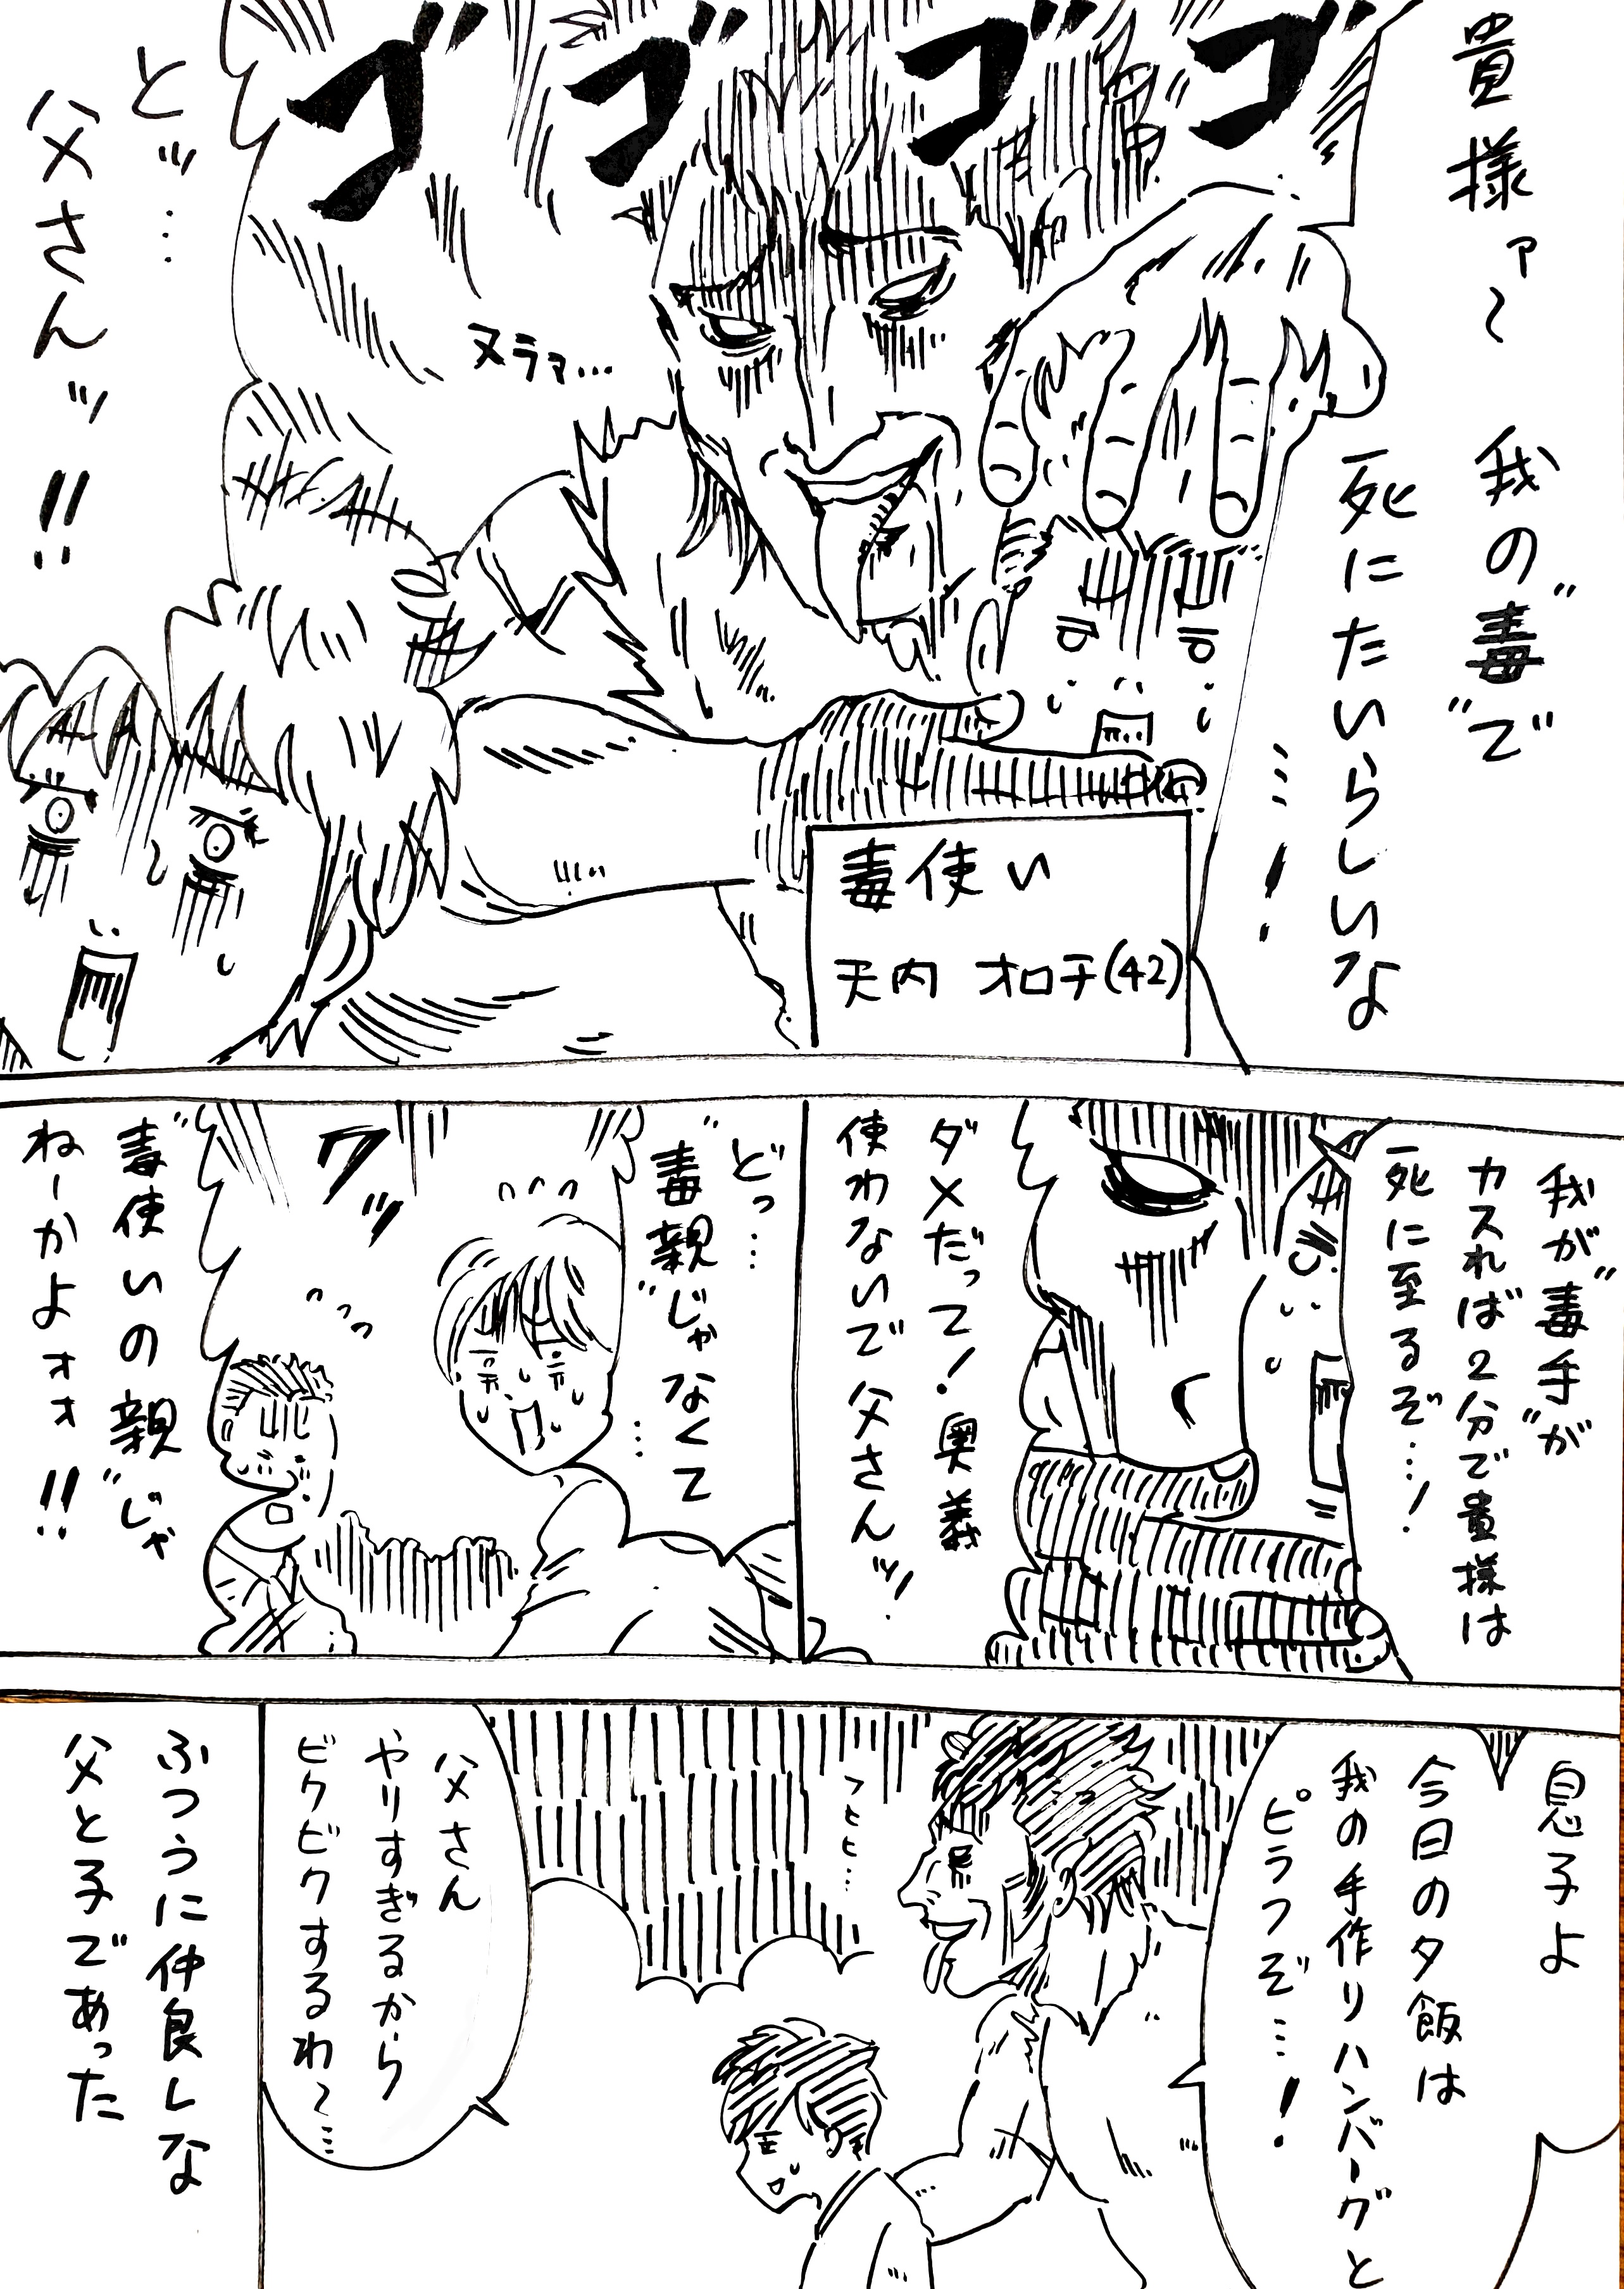 貴様ァ〜
我の"毒"で
死にたいらしいな
……!
ゴゴゴゴ
ヌラァ…
とッ…
父さんッ!!
毒使い
天内 オロチ(42)
我が"毒手"が
カスれば2分で貴様は
死に至るぞ…!
ダメだって!奥義
使わないで父さんッ!
どっ…
"毒親"じゃなくて
…
ワッ
"毒使いの親"じゃ
ねーかよォォ!!
息子よ
今日の夕飯は
我の手作りハンバーグと
ピラフぞ…!
父さん
やりすぎるから
ビクビクするわ〜…
ふつうに仲良しな
父と子であった